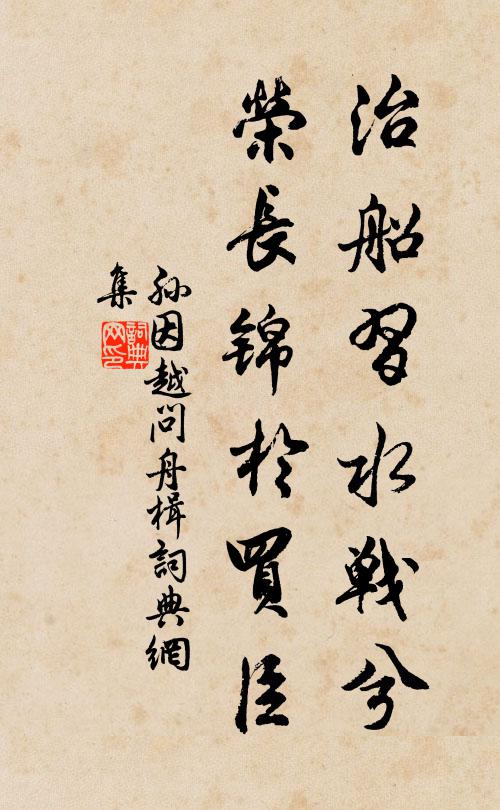 治船習水戰兮
榮長錦於買臣
孫因越問舟楫詞典網
集
詞典網印